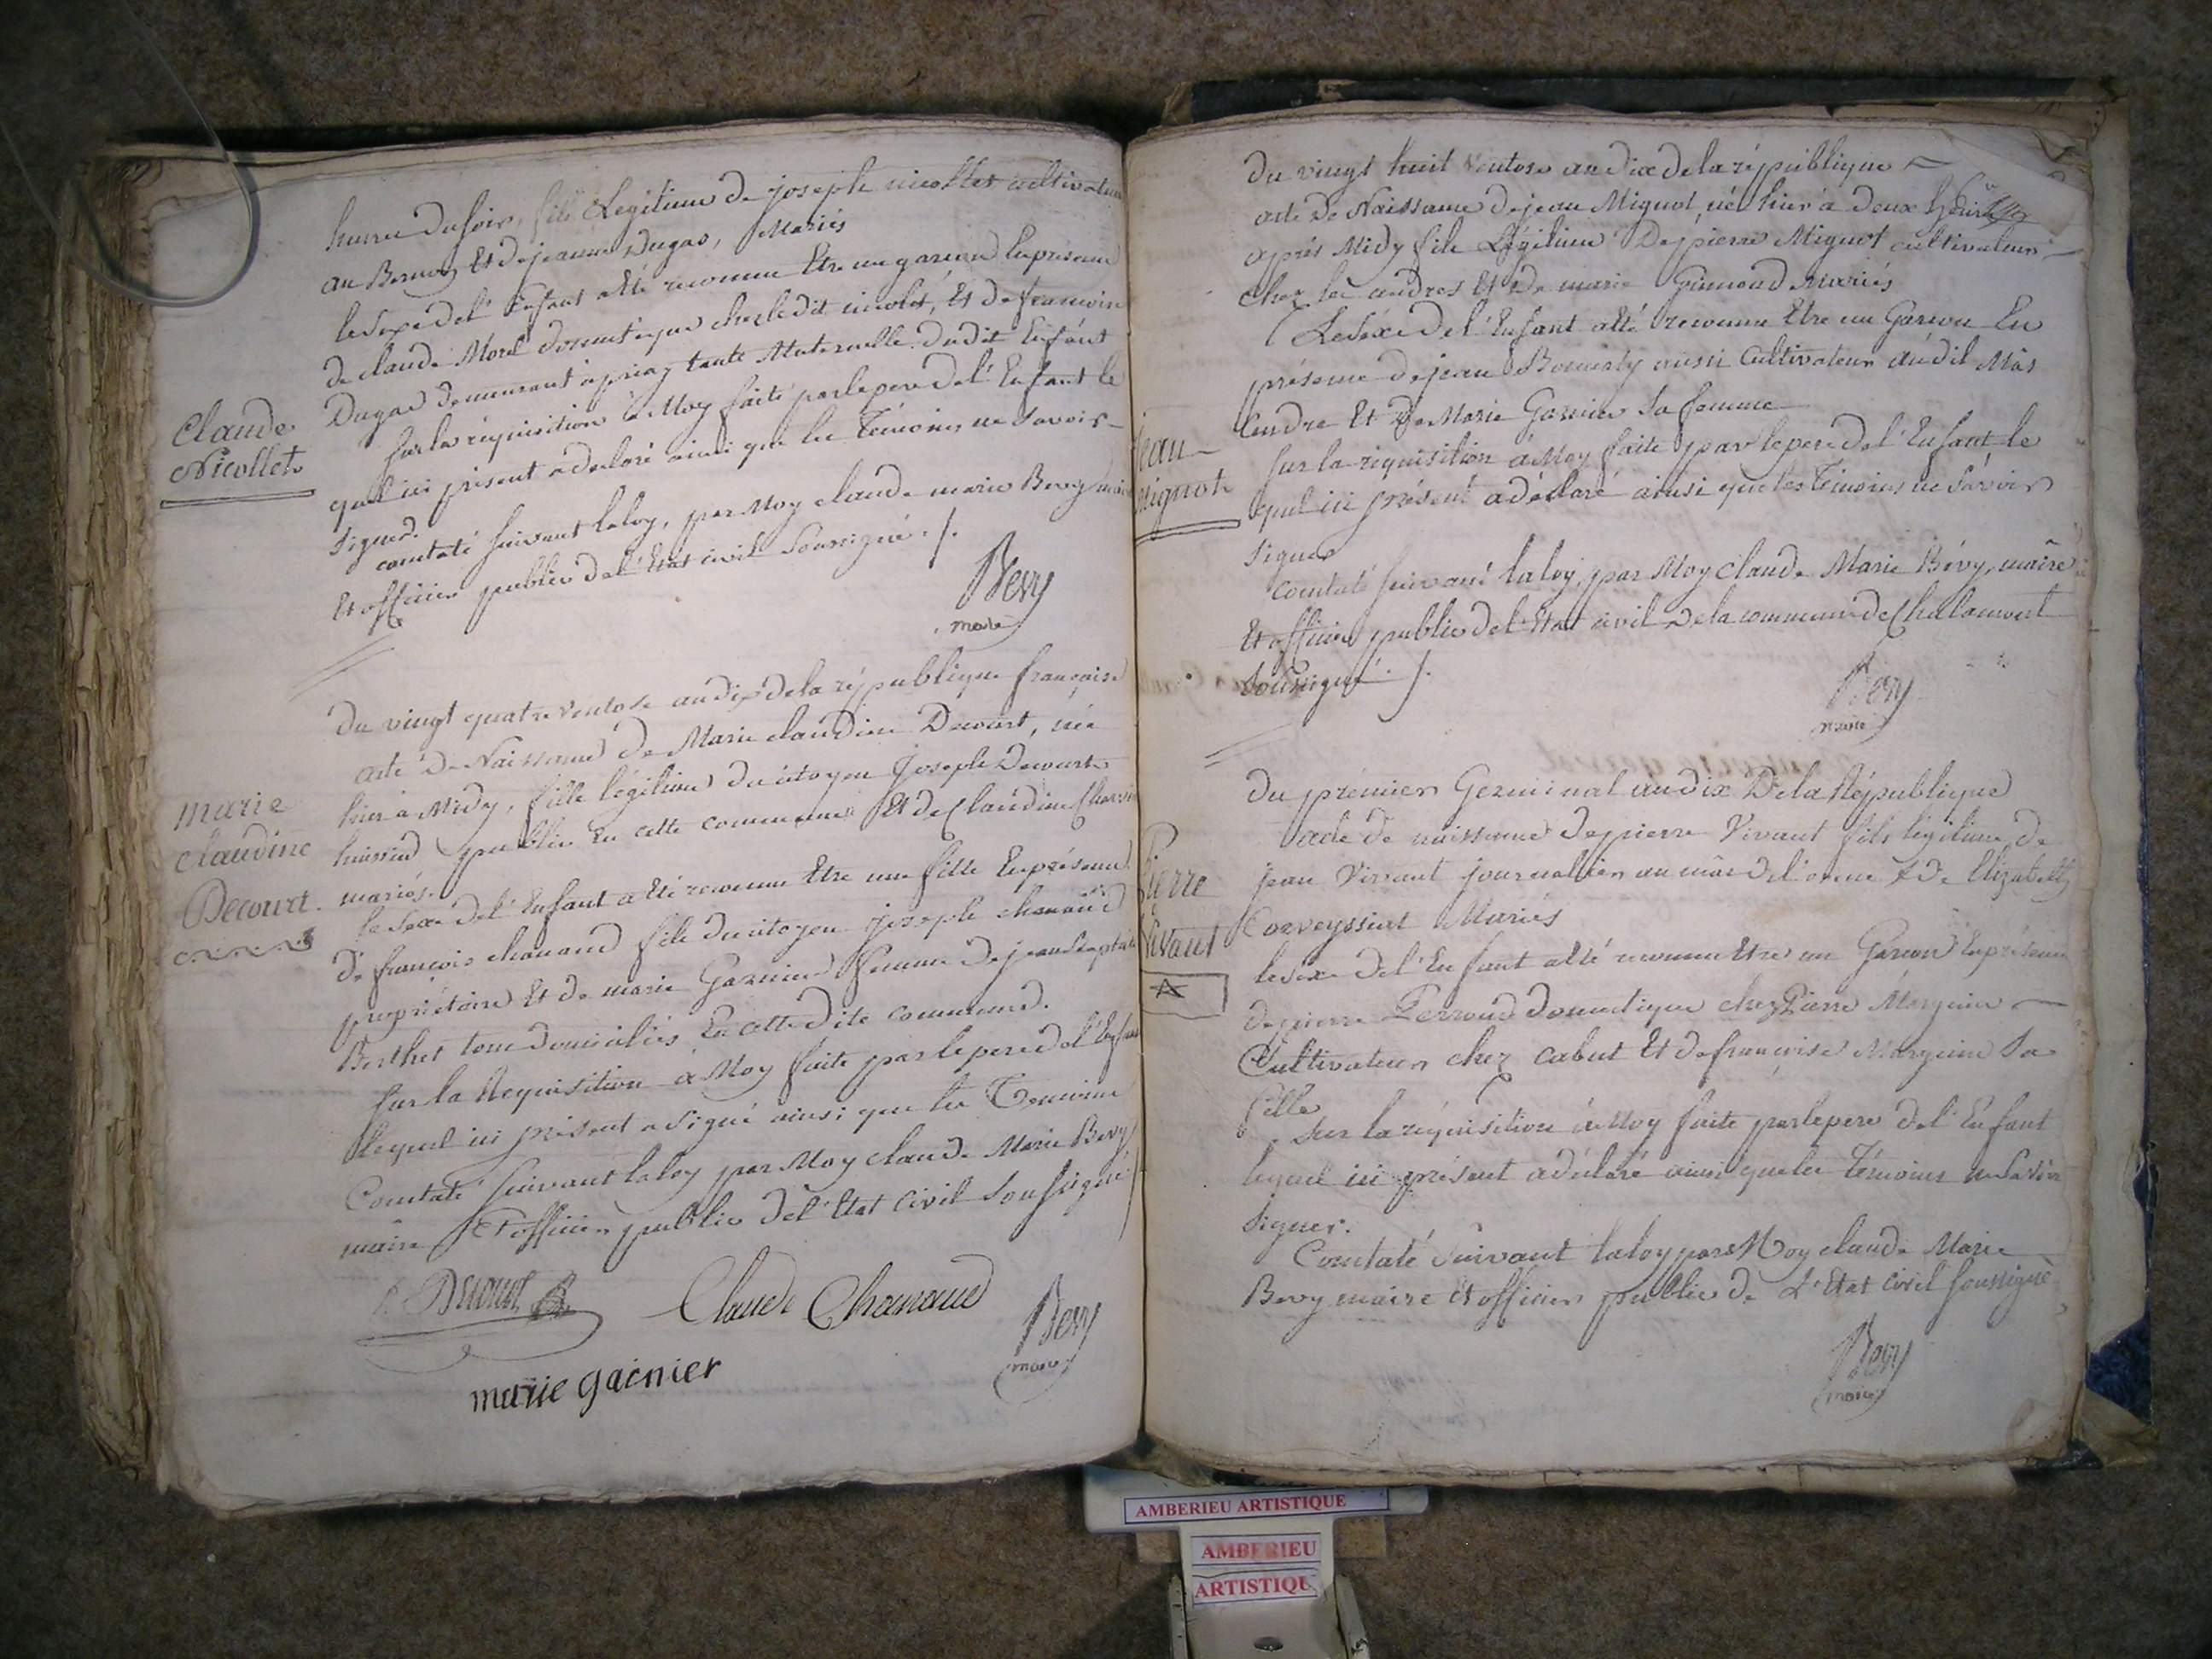 heures du soir, fils Légitime de joseph nicollet cultivateur
au Bernoy Et de jeanne Dugas, Mariés
le Sexe de l'Enfant a été reconnu Etre un garcon En présence
de claude Morel domestique chez le dit nicolet, Et de francoise
Dugas demeurant a priay tante Maternelle du dit Enfant
Sur la réquisition à Moy faite par le pere de l'Enfant le
quel ici présent a déclaré ainsi que les Témoins ne Savoir
Signer.
constaté Suivant la loy, par Moy claude marie Bevy maire
Et officier public de l'Etat civil Soussigné ./.
Claude
Nicollet
Bevy
maire
Du vingt quatre ventose an dix de la république française
acte de Naissance de Marie claudine Decourt, née
hier à Midy, fille légitime du citoyen Joseph Decourt
huissier public En cette commune Et de Claudine
mariés.
le Sexe de l'Enfant a été reconnu Etre une fille En présence
de francois chanaud fils du citoyen joseph chanaud
propriétaire Et de marie Garnier femme de jean Baptiste
Berthet tous domiciliés En cette dite commune.
Sur la Requisition à Moy faite par le pere de l'Enfant
lequel ici présent a signé ainsi que les Témoins
Constaté Suivant la loy par Moy claude Marie Bevy
maire Et officier public de l'Etat civil Soussigné
marie
claudine
Decourt
Decourt
Claude Chanaud
Bevy
maire
marie garnier
Du vingt huit Ventose an dix de la république
acte de Naissance de jean Mignot, né hier à deux heures
après Midy fils Légitime De pierre Mignot cultivateur
chez les andres Et de marie mariés
Le Sexe de l'Enfant a été reconnu Etre un Garcon En
présence de jean aussi Cultivateur au dit Mas
Cendre Et de Marie Garnier Sa femme
Sur la réquisition à Moy faite par le pere de l'Enfant, le
quel ici présent a déclaré ainsi que les Témoins ne Savoir
Signer
Constaté Suivant la loy, par Moy claude Marie Bévy, maire
Et officier public de l'Etat civil de la commune de Chalamont
Soussigné ./.
Jean
Mignot
Bevy
maire
Du prémier Germinal an dix De la République
acte de naissance de pierre Vivant fils légitime de
jean Vivant journalier au mas de l'orme & de Elizabeth
Corveyssiat Mariés
le sexe de l'Enfant a été reconnu Etre un Garcon En présence
de pierre Perroud domestique chez Pierre Morgain
Cultivateur chez cabut Et de françoise Morgain Sa
fille
Sur la réquisition à Moy faite par le pere de l'Enfant
lequel ici présent a déclaré ainsi que les Témoins ne Savoir
Signer.
Constaté Suivant la loy par Moy claude Marie
Bevy maire Et officier public de L'Etat civil Soussigné
Pierre
Vivant
Bevy
maire
AMBERIEU ARTISTIQUE
AMBERIEU
ARTISTIQU